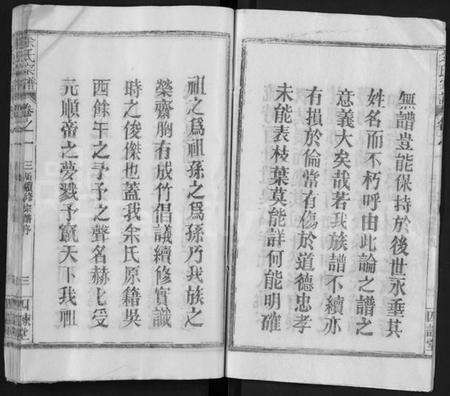 無譜豈能保持於後世永垂其
姓名而不朽呼由此論之譜之
意義大矣哉若我族譜不續亦
有損於倫常有傷於道德忠孝
未能表枝葉莫能詳何能明確
祖之爲祖孫之爲孫乃我族之
榮齋胸有成竹倡議續修實識
時之俊傑也蓋我余氏原籍吳
西餘干之予予之聲名赫上受
元順帝之夢戮予竄天下我祖
余氏宗譜
卷之一
三